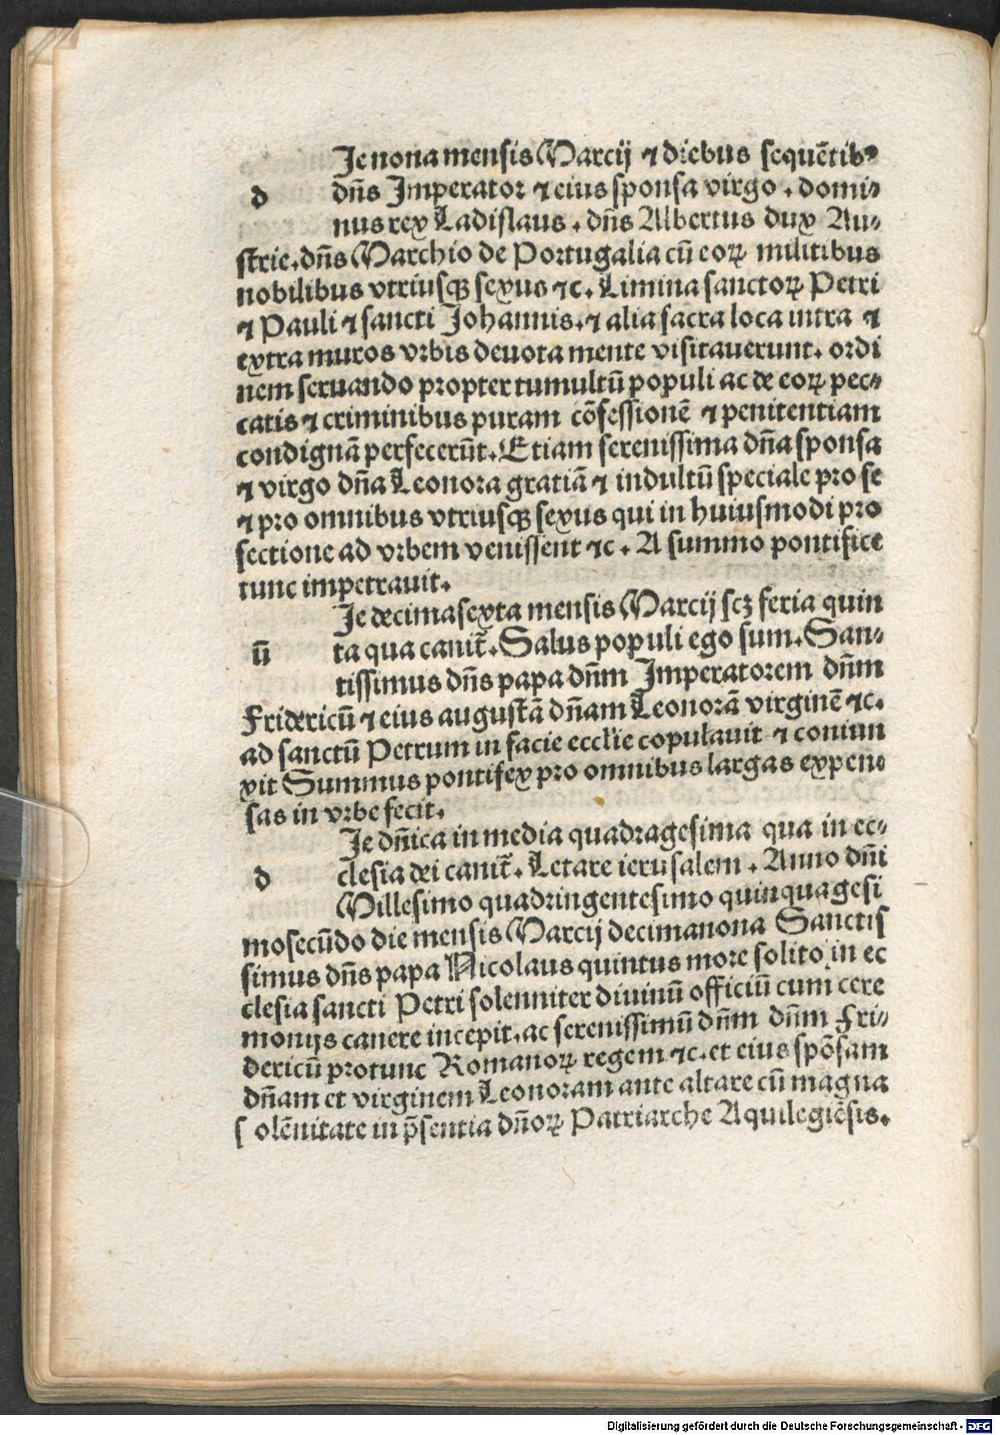 Je nona mensis Marcij ⁊ diebus sequẽtibꝰ
d dñs Imperator ⁊ eius sponsa virgo . domi⸗
nus rex Ladislaus . dñs Albertus dux Au⸗
strie . dñs Marchio de Portugalia cũ eoꝝ militibus
nobilibus vtriusqꝫ sexus ⁊c . Limina sanctoꝝ Petri
⁊ Pauli ⁊ sancti Johannis . ⁊ alia sacra loca intra ⁊
extra muros vrbis deuota mente visitauerunt . ordi
nem seruando propter tumultũ populi ac de eoꝝ pec⸗
catis ⁊ criminibus puram cõfessionẽ ⁊ penitentiam
condignã perfecerũt . Etiam serenissima dña sponsa
⁊ virgo dña Leonora gratiã ⁊ indultũ speciale pro se
⁊ pro omnibus vtriusqꝫ sexus qui in huiusmodi pro
fectione ad vrbem venissent ⁊c . A summo pontifice
tunc impetrauit .
Je decimasexta mensis Marcij scꝫ feria quin
ũ ta qua canit̃ . Salus populi ego sum . San⸗
tissimus dñs papa dñm Imperatorem dñm
Fridericũ ⁊ eius augustã dñam Leonorã virginẽ ⁊c .
ad sanctũ Petrum in facie eccl'ie copulauit ⁊ coniun
xit Summus pontifex pro omnibus largas expen⸗
sas in vrbe fecit .
Je dñica in media quadragesima qua in ec⸗
d clesia dei canit̃ . Letare ierusalem . Anno dñi
Millesimo quadringentesimo quinquagesi
mosecũdo die mensis Marcij decimanona Sanctis
simus dñs papa Nicolaus quintus more solito in ec
clesia sancti Petri solenniter diuinũ officiũ cum cere
monijs canere incepit . ac serenissimũ dñm dñm Fri⸗
dericũ protunc Romanoꝝ regem ⁊c . et eius spõsam
dñam et virginem Leonoram ante altare cũ magna
s olẽnitate in p̃sentia dñoꝝ Patriarche Aquilegiẽsis .
Digitalisierung gefördert durch die Deutsche Forschungsgemeinschaft - DFG